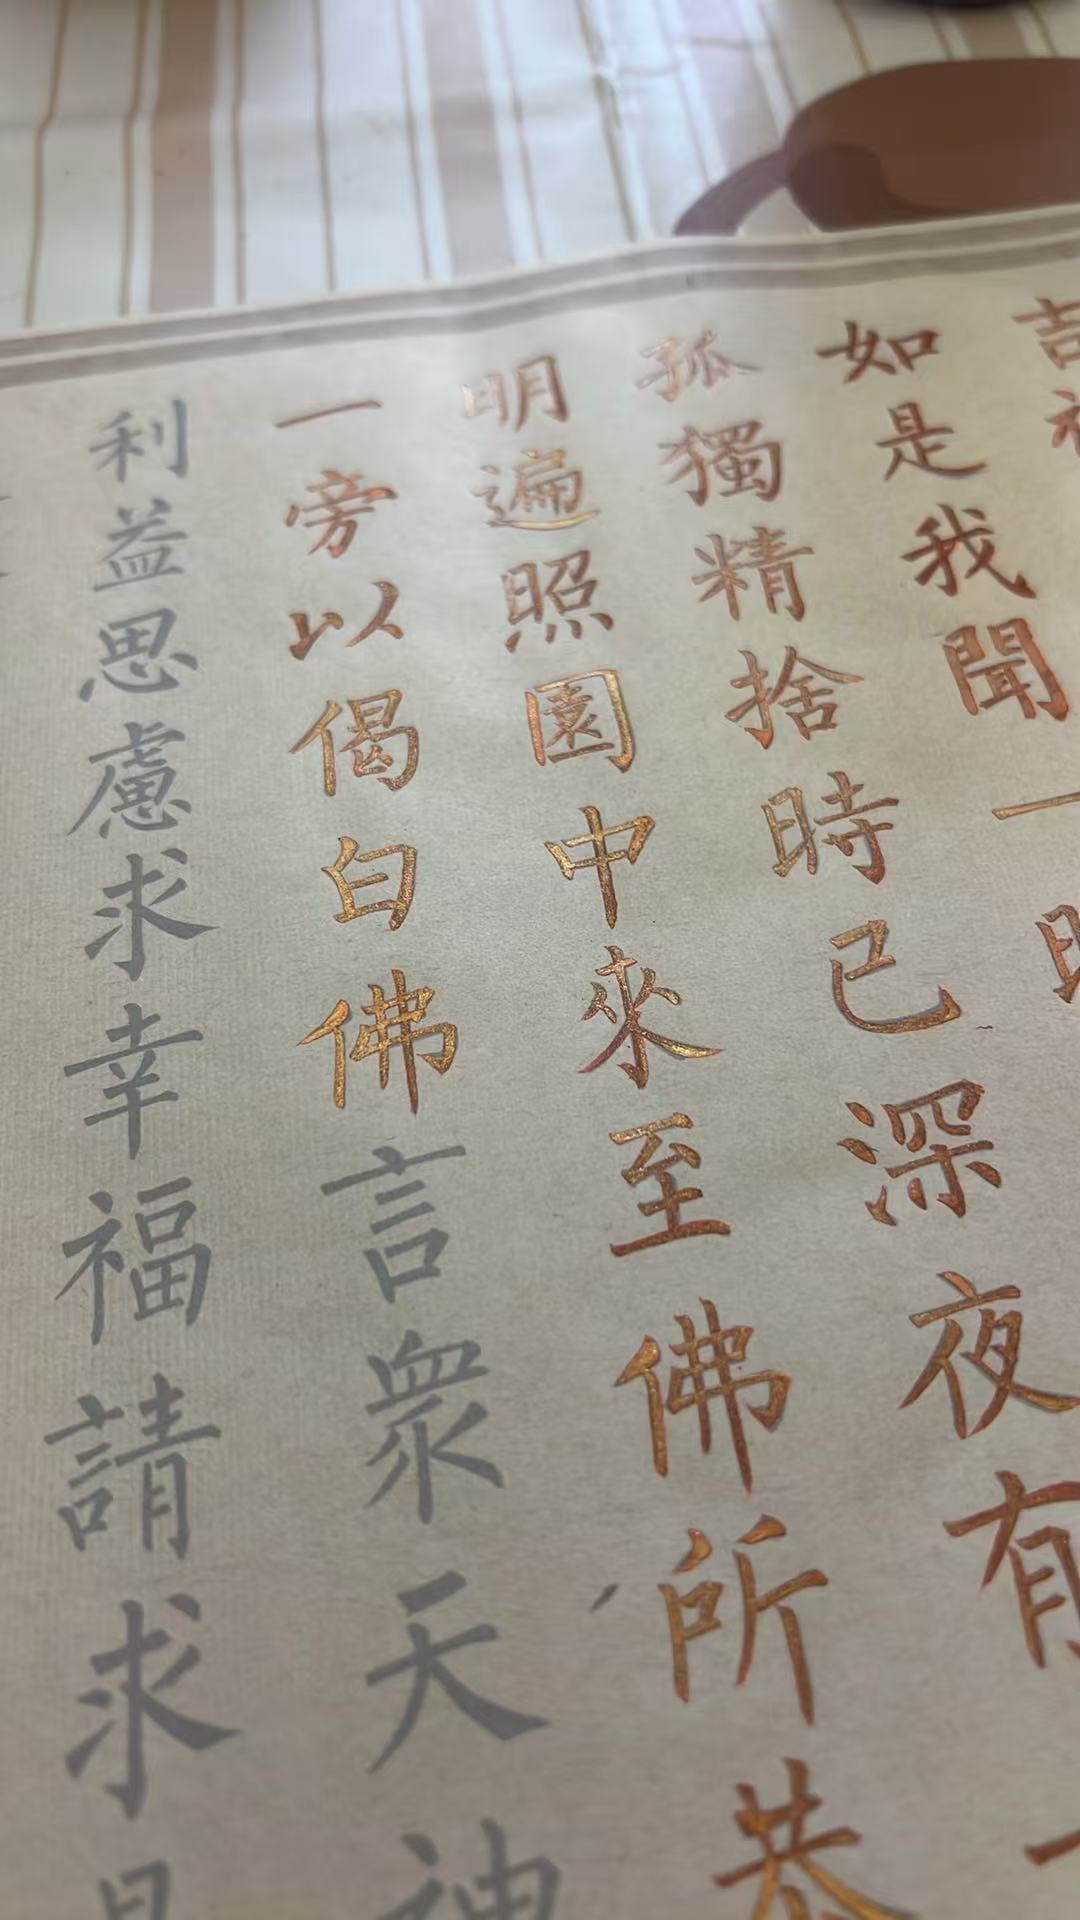 吉
如是我聞一時
孤獨精捨時已深夜有一
明遍照園中來至佛所恭
一旁以偈白佛言眾天神
利益思慮求幸福請求